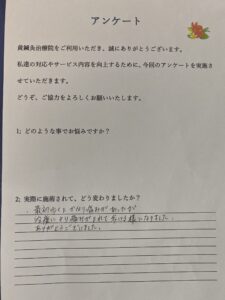 アンケート
鍼灸治療院をご利用いただき、誠にありがとうございます。
私達の対応やサービス内容を向上するために、今回のアンケートを実施さ
せていただきます。
どうぞ、ご協力をよろしくお願いいたします。
1: どのような事でお悩みですか?
2: 実際に施術されて、どう変わりましたか?
最初歩くとかなり痛みがあったが
治療により痛みがとれて歩ける様になりました。
ありがとうございました。